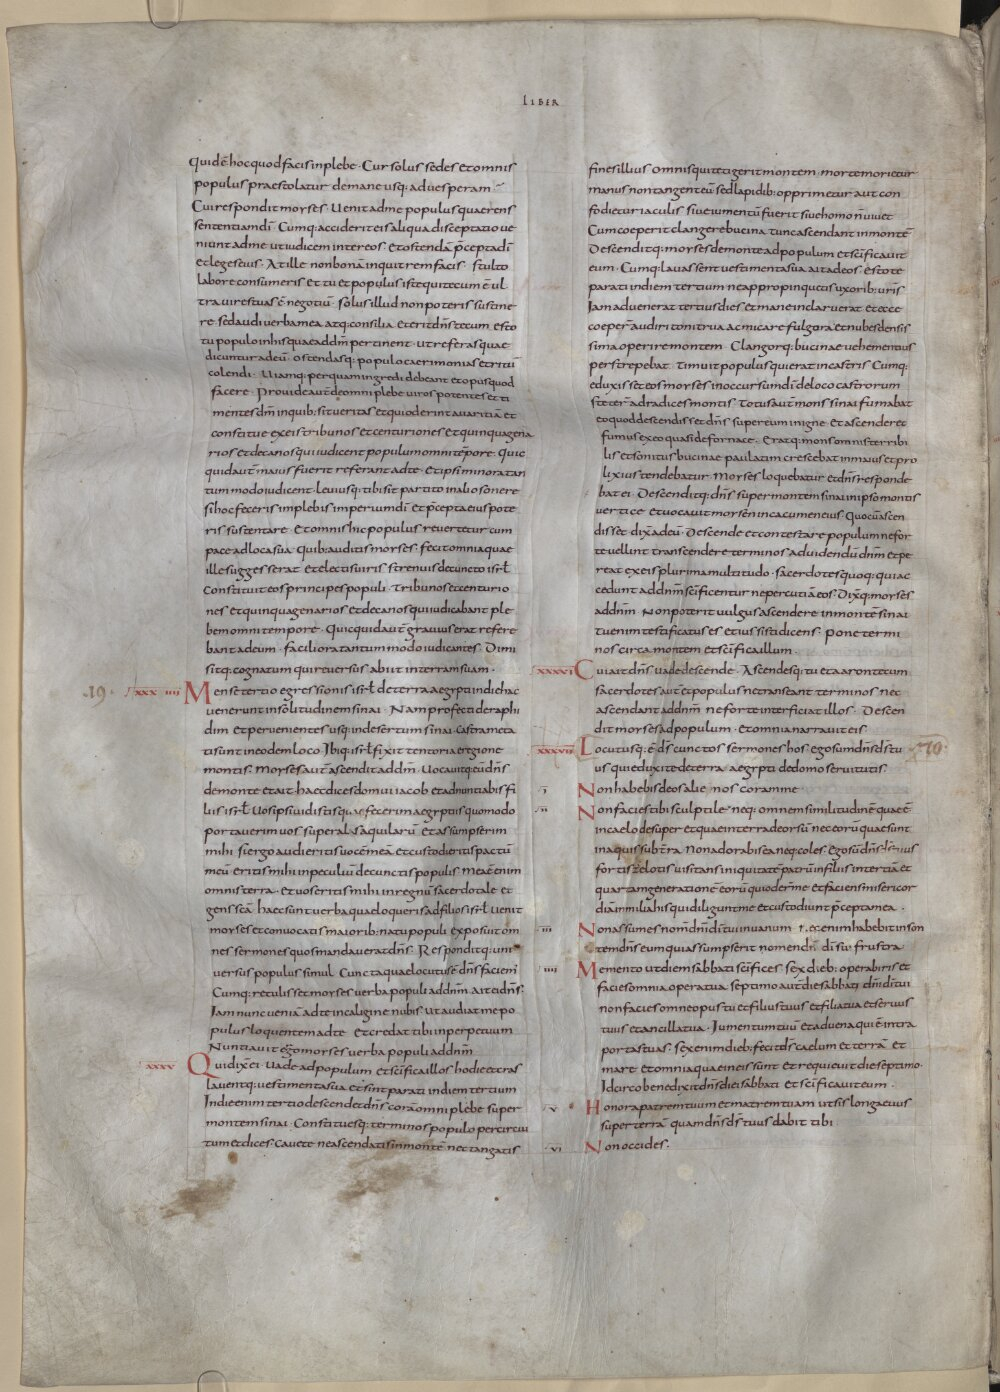 LIBER
quid ē hoc quod facis in plebe · Cur solus sedes et omnis
populus praestolatur de mane usq; ad uesperam ·
Cui respondit moyses · Uenit ad me populus quaerens
sententiam dī · Cumq; acciderit eis aliqua disceptatio ue
niunt ad me ut iudicem inter eos · et ostendā p̄cepta dī
et leges eius · At ille non bonā inquit rem facis · stulto
labore consumeris et tu et populus iste qui tecum ē · ul
tra uires tuas ē negotiū · solus illud non poteris sustine
re · sed audi uerba mea atq; consilia et erit dn̄s tecum · esto
tu populo in his quae ad dm̄ pertinent · ut referas quae
dicuntur ad eū · ostendasq; populo caerimonias et ritū
colendi · Uiamq; per quam ingredi debeant et opus quod
facere · Prouide aūt de omni plebe uiros potentes et ti
mentes dm̄ in quib; sit ueritas et qui oderint auaritiā et
constitue ex eis tribunos et centuriones et quinquagena
rios et decanos qui iudicent populum omni tēpore · Quic
quid aūt maius fuerit referant ad te · Et ipsi minora tan
tum modo iudicent · leuiusq; tibi sit partito in alios onere
si hoc feceris implebis imperium dī et p̄cepta eius pote
ris sustentare · Et omnis hic populus reuertetur cum
pace ad loca sua · Quib; auditis moyses · fecit omnia quae
ille suggesserat · et electis uiris strenuis de cuncto isrl̄
constituit eos principes populi · Tribunos et centurio
nes et quinquagenarios et decanos qui iudicabant ple
bem omni tempore · Quicquid aūt grauius erat refere
bant ad eum · faciliora tantum modo iudicantes · Dimi
sitq; cognatum qui reuersus abiit in terram suam ·
·19· xxxiiii Mense tertio egressionis isrl̄ de terra aegypti in die hac
uenerunt in solitudinem sinai · Nam profecti de raphi
dim et peruenientes usq; in desertum sinai · castrameta
ti sunt in eodem loco · Ibiq; isrl̄ fixit tentoria e regione
montis · Moyses aūt ascendit ad dm̄ · Uocauitq; eū dn̄s
de monte et ait · haec dices domui iacob et adnuntiabis fi
liis isrl̄ · Uos ipsi uidistis quae fecerim aegyptiis quomodo
portauerim uos super alas aquilarū · et assumpserim
mihi · si ergo audieritis uocē meā et custodieritis pactū
meū eritis mihi in peculiū de cunctis populis · Mea ē enim
omnis terra · et uos eritis mihi in regnū sacerdotale et
gens sc̄a · haec sunt uerba quae loqueris ad filios isrl̄ · Uenit
moyses et conuocatis maiorib; natu populi exposuit om
nes sermones quos mandauerat dn̄s · Responditq; uni
uersus populus simul · Cuncta quae locutus ē dn̄s faciem̄
Cumq; retulisset moyses uerba populi ad dnm̄ · ait ei dn̄s ·
Iam nunc ueniā ad te in caligine nubis · ut audiat me po
pulus loquentem ad te · et credat tibi in perpetuum
Nuntiauit ergo moyses uerba populi ad dnm̄
xxxv Qui dix̄ ei · Uade ad populum et sc̄ifica illos hodie et cras
lauentq; uestimenta sua et sint parati in diem tertium
In die enim tertio descendet dn̄s corā omni plebe super
montem sinai · Constituesq; terminos populo per circui
tum et dices · Cauete ne ascendatis in montē · nec tangatis
fines illius · omnis qui tetigerit montem · morte morietur
manus non tanget eū sed lapidib; opprimetur aut con
fodietur iaculis · siue iumentū fuerit siue homo ñ uiuet
Cum coeperit clangere bucina tunc ascendant in montē
Descenditq; moyses de monte ad populum et sc̄ificauit
eum · Cumq; lauassent uestimenta sua ait ad eos · estote
parati in diem tertium ne appropinquetis uxorib; ur̄is
Iam aduenerat tertius dies et mane inclaruerat · et ecce
coeperꝭ audiri tonitrua ac micare fulgora et nubes densis
sima operire montem · Clangorq; bucinae uehementius
perstrepebat · timuit populus qui erat in castris · Cumq;
eduxisset eos moyses in occursum dī de loco castrorum
steterꝭ ad radices montis · Totus aūt mons sinai fumabat
eo quod descendisset dn̄s super eum in igne · Et ascenderet
fumus ex eo quasi de fornace · Eratq; mons omnis terribi
lis et sonitus bucinae paulatim crescebat in maius et pro
lixius tendebatur · Moyses loquebatur et dn̄s responde
bat ei · Descenditq; dn̄s super montem sinai in ipso montis
uertice · et uocauit moysen in cacumen eius · Quo cū ascen
disset dix̄ ad eū · Descende et contestare populum ne for
te uellint transcendere terminos ad uidendū dnm̄ et pe
reat ex eis plurima multitudo · sacerdotes quoq; qui ac
cedunt ad dnm̄ sc̄ificentur ne percutiā eos · Dix̄q; moyses
ad dnm̄ · Non poterit uulgus ascendere in montē sinai
tu enim testificatus es et iussisti dicens · Pone termi
nos circa montem et sc̄ifica illum ·
xxxvi Cui ait dn̄s · uade descende · Ascendesq; tu et aaron tecum
sacerdotes aūt et populus ne transeant terminos nec
ascendant ad dnm̄ ne forte interficiat illos · Descen
dit moyses ad populum · et omnia narrauit eis
xxxvii Locutusq; ē dn̄s cunctos sermones hos · ego sum dn̄s ds̄ tu ·20·
us qui eduxi te de terra aegypti de domo seruitutis ·
i Non habebis deos alienos coram me
ii Non facies tibi sculptile · neq; omnem similitudinē quae ē
in caelo desuper et quae in terra deorsū nec eorū quae sunt
in aquis sub terra · Non adorabis ea neq; coles · Ego sū dn̄s ds̄ tuus
fortis zelotis uisitans iniquitatē patrū in filiis in tertiā et
quartam generationē eorū qui oderꝭ me · et faciens misericor
diā in milia his qui diligunt me et custodiunt p̄cepta mea ·
iii Non assumes nomen dn̄i dī tui in uanum · nec enim habebit inson
tem dn̄s eum qui assumpserit nomen dn̄i dī sui frustra
iiii Memento ut diem sabbati sc̄ifices · sex dieb; operabiris et
facies omnia opera tua · septimo aūt die sabbati dn̄i dī tui
non facies omne opus · tu et filius tuus et filia tua et seruus
tuus et ancilla tua · Iumentum tuū et aduena qui ē intra
portas tuas · sex enim dieb; fecit ds̄ caelum et terrā et
mare et omnia quae in eis sunt et requieuit die septimo ·
Idcirco benedixit dn̄s diei sabbati et sc̄ificauit eum ·
v Honora patrem tuum et matrem tuam ut sis longaeuus
super terrā quam dn̄s ds̄ tuus dabit tibi
vi Non occides ·